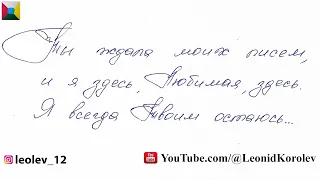 Ты ждала моих писем,
и я здесь, Любимая, здесь.
Я всегда Твоим остаюсь...
leolev_12
YouTube.com/@LeonidKorolev